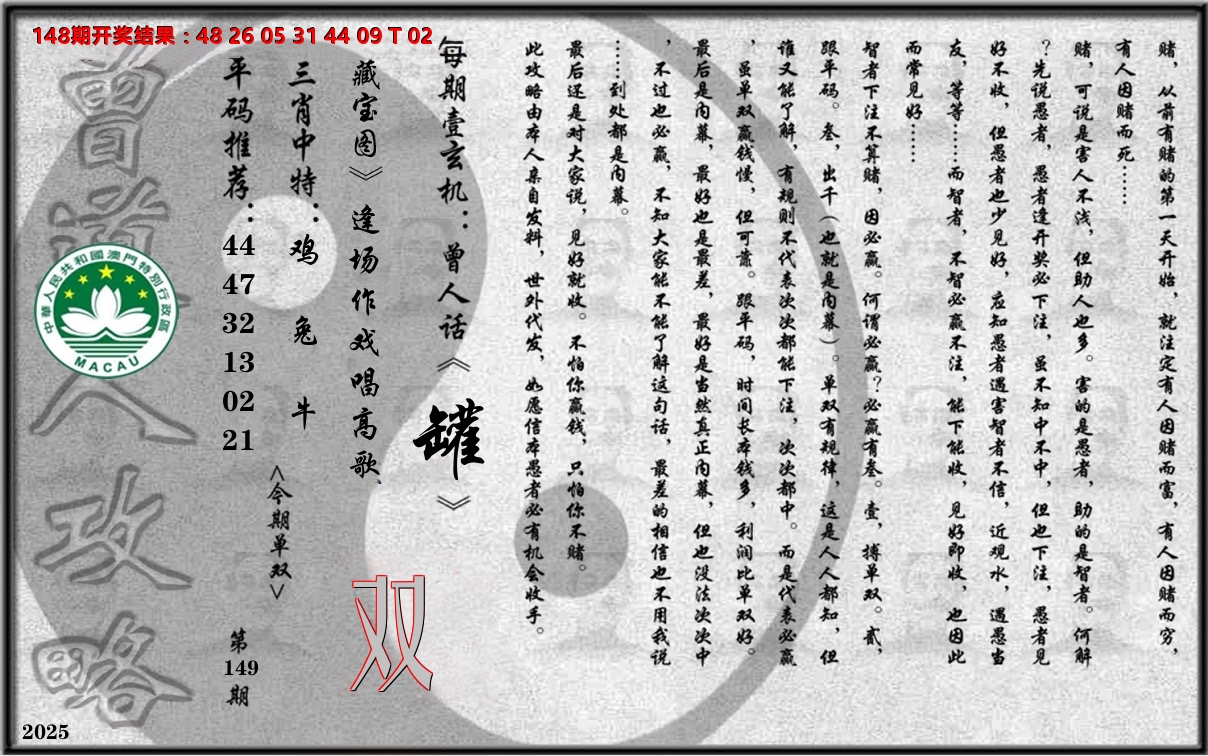 148期开奖结果：48 26 05 31 44 09 T 02
赌，从前有赌的第一天开始，就注定有人因赌而富，有人因赌而穷，
有人因赌而死……
赌，可说是害人不浅，但助人也多。害的是愚者，助的是智者。何解
？先说愚者，愚者逢开奖必下注，虽不知中不中，但也下注，愚者见
好不收，但愚者也少见好，应知愚者遇害智者不信，近观水，遇愚当
友，等等……而智者，不智必赢不注，能下能收，见好即收，也因此
而常见好……
智者下注不算赌，因必赢。何谓必赢？必赢有叁。壹，搏单双。贰，
跟平码。叁，出千（也就是内幕）。单双有规律，这是人人都知，但
谁又能了解，有规则不代表次次都能下注，次次都中。而是代表必赢
，虽单双赢钱慢，但可靠。跟平码，时间长本钱多，利润比单双好。
最后是内幕，最好也是最差，最好是当然真正内幕，但也没法次次中
，不过也必赢，不知大家能不能了解这句话，最差的相信也不用我说
……到处都是内幕。
最后还是对大家说，见好就收。不怕你赢钱，只怕你不赌。
此攻略由本人亲自发料，世外代发，如愿信本愚者必有机会收手。
每期壹玄机：曾人话《罐》
藏宝图》逢场作戏唱高歌
双
三肖中特：鸡 兔 牛
<今期单双>
平码推荐：44 47 32 13 02 21
第149期
曾道人攻略
中華人民共和國澳門特別行政區
MACAU
2025